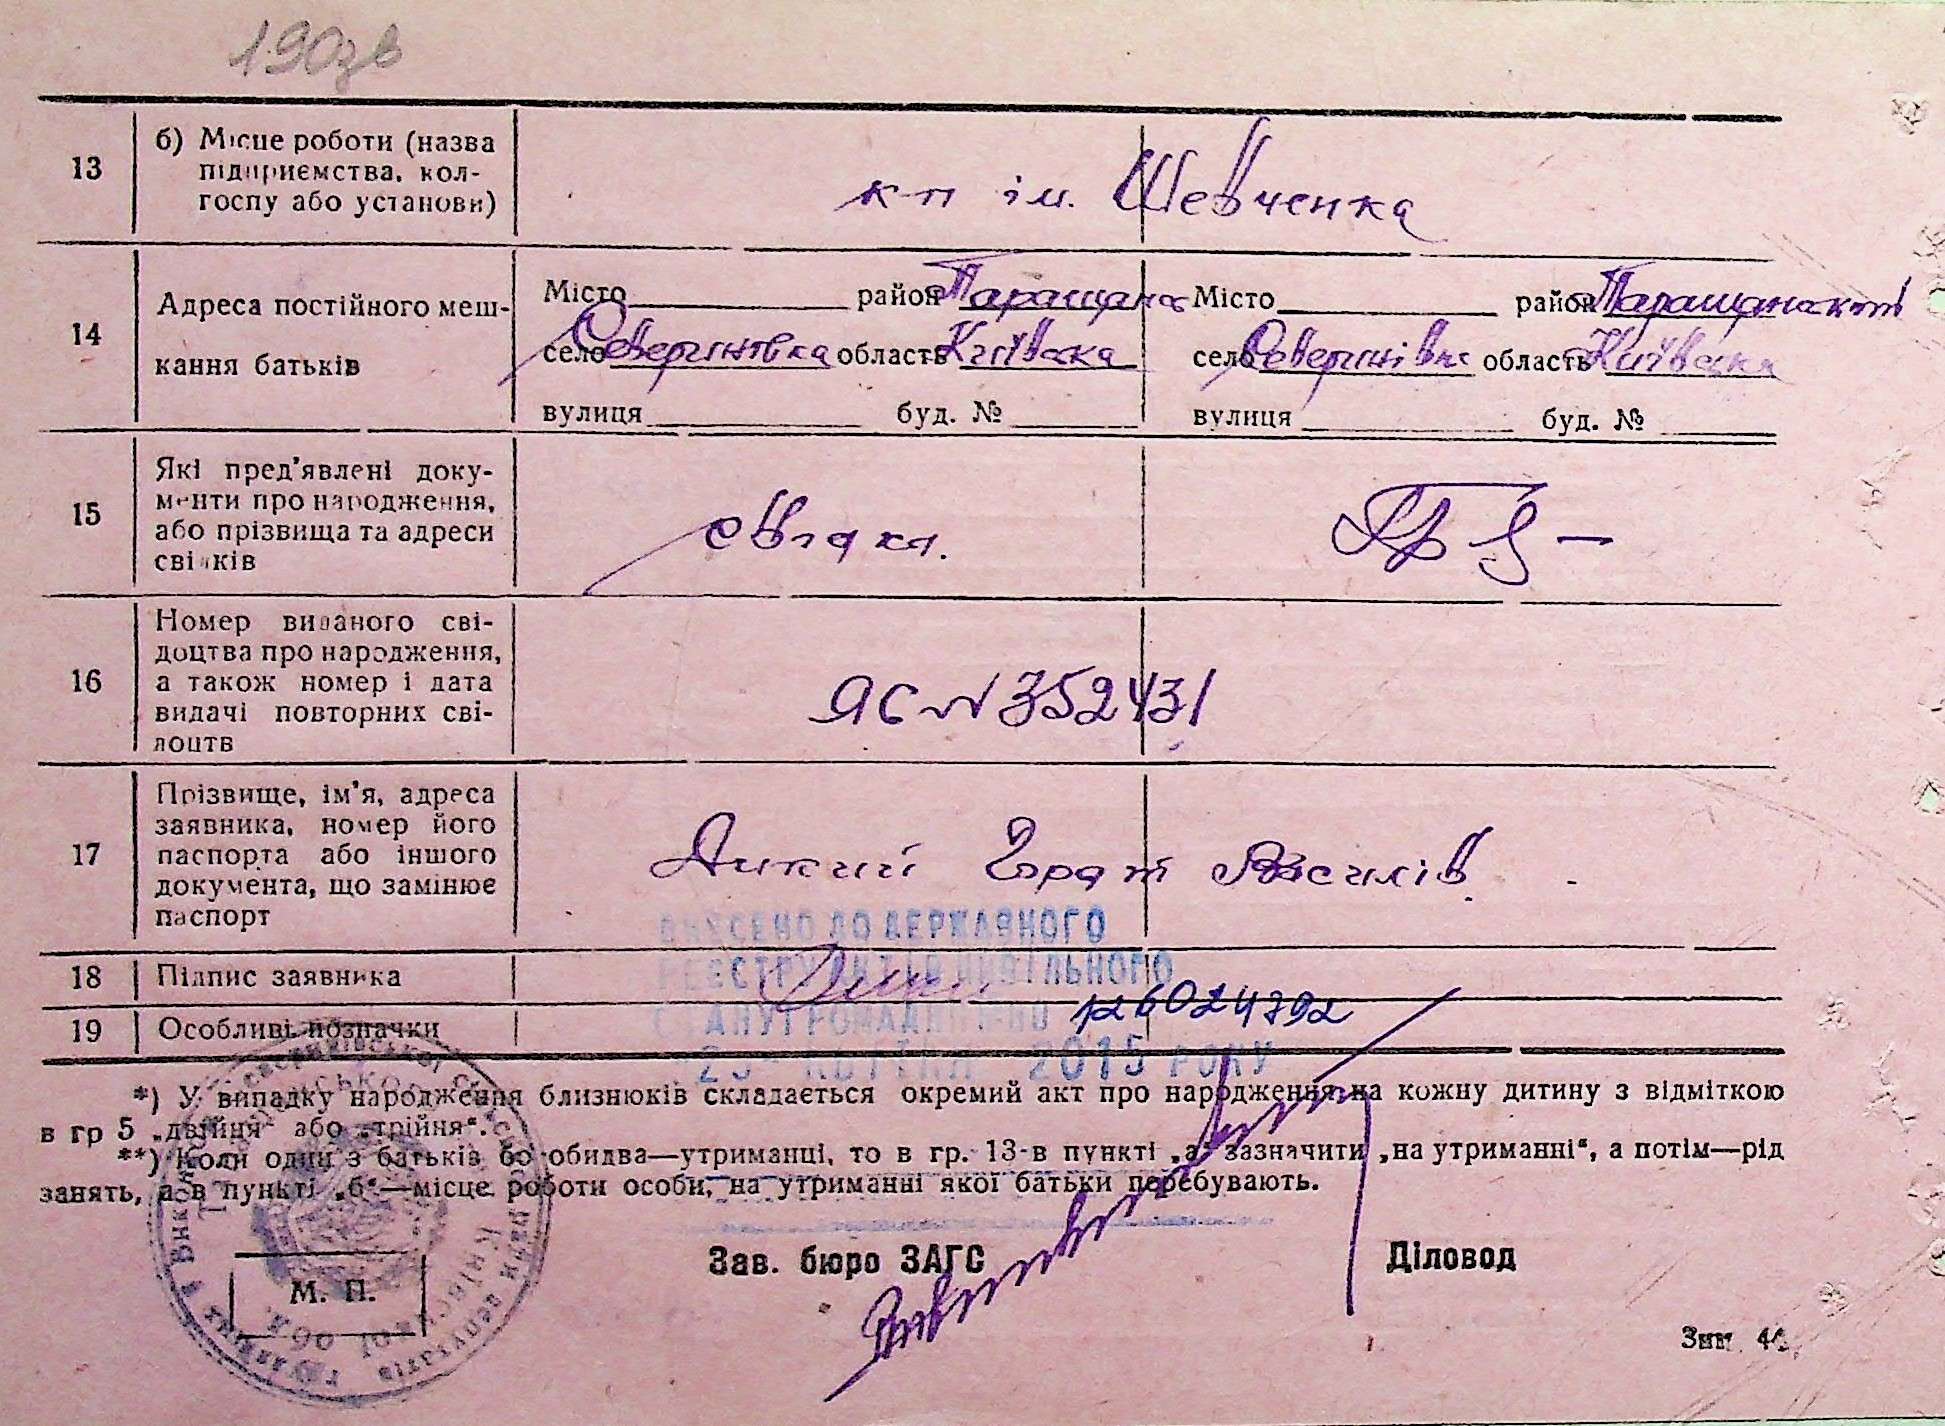 190зв
13 б) Місце роботи (назва підприємства, колгоспу або установи) к-п ім. Шевченка
14 Адреса постійного мешкання батьків
Місто район Таращанс Місто район
село Северинівка область Київська село Северинівка область Київська
вулиця буд. № вулиця буд. №
15 Які пред'явлені документи про народження, або прізвища та адреси свідків
16 Номер виданого свідоцтва про народження, а також номер і дата видачі повторних свідоцтв ЯС № 352431
17 Прізвище, ім'я, адреса заявника, номер його паспорта або іншого документа, що замінює паспорт Дикий
ВНЕСЕНО ДО ДЕРЖАВНОГО
РЕЄСТРУ АКТІВ ЦИВІЛЬНОГО
18 Підпис заявника
СТАНУ ГРОМАДЯН ПО 126024792
19 Особливі позначки
КВІТНЯ 2015 РОКУ
*) У випадку народження близнюків складається окремий акт про народження на кожну дитину з відміткою
в гр 5 „двійня“ або „трійня“.
**) Коли один з батьків або обидва—утриманці, то в гр. 13-в пункті „а“ зазначити „на утриманні“, а потім—рід
занять, а в пункті „б“—місце роботи особи, на утриманні якої батьки перебувають.
Зав. бюро ЗАГС Діловод
М. П.